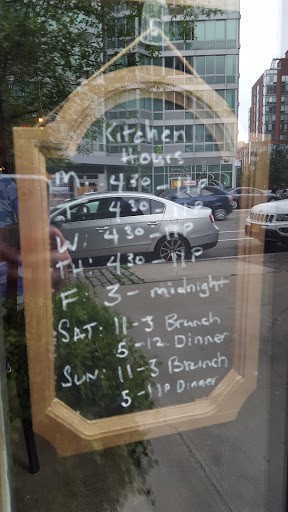 Kitchen
Hours
M: 430-11P
T: 430-11P
W: 430-11P
TH: 430-11P
F: 3-midnight
SAT: 11-3 Brunch
5-12 Dinner
SUN: 11-3 Brunch
5-11P Dinner